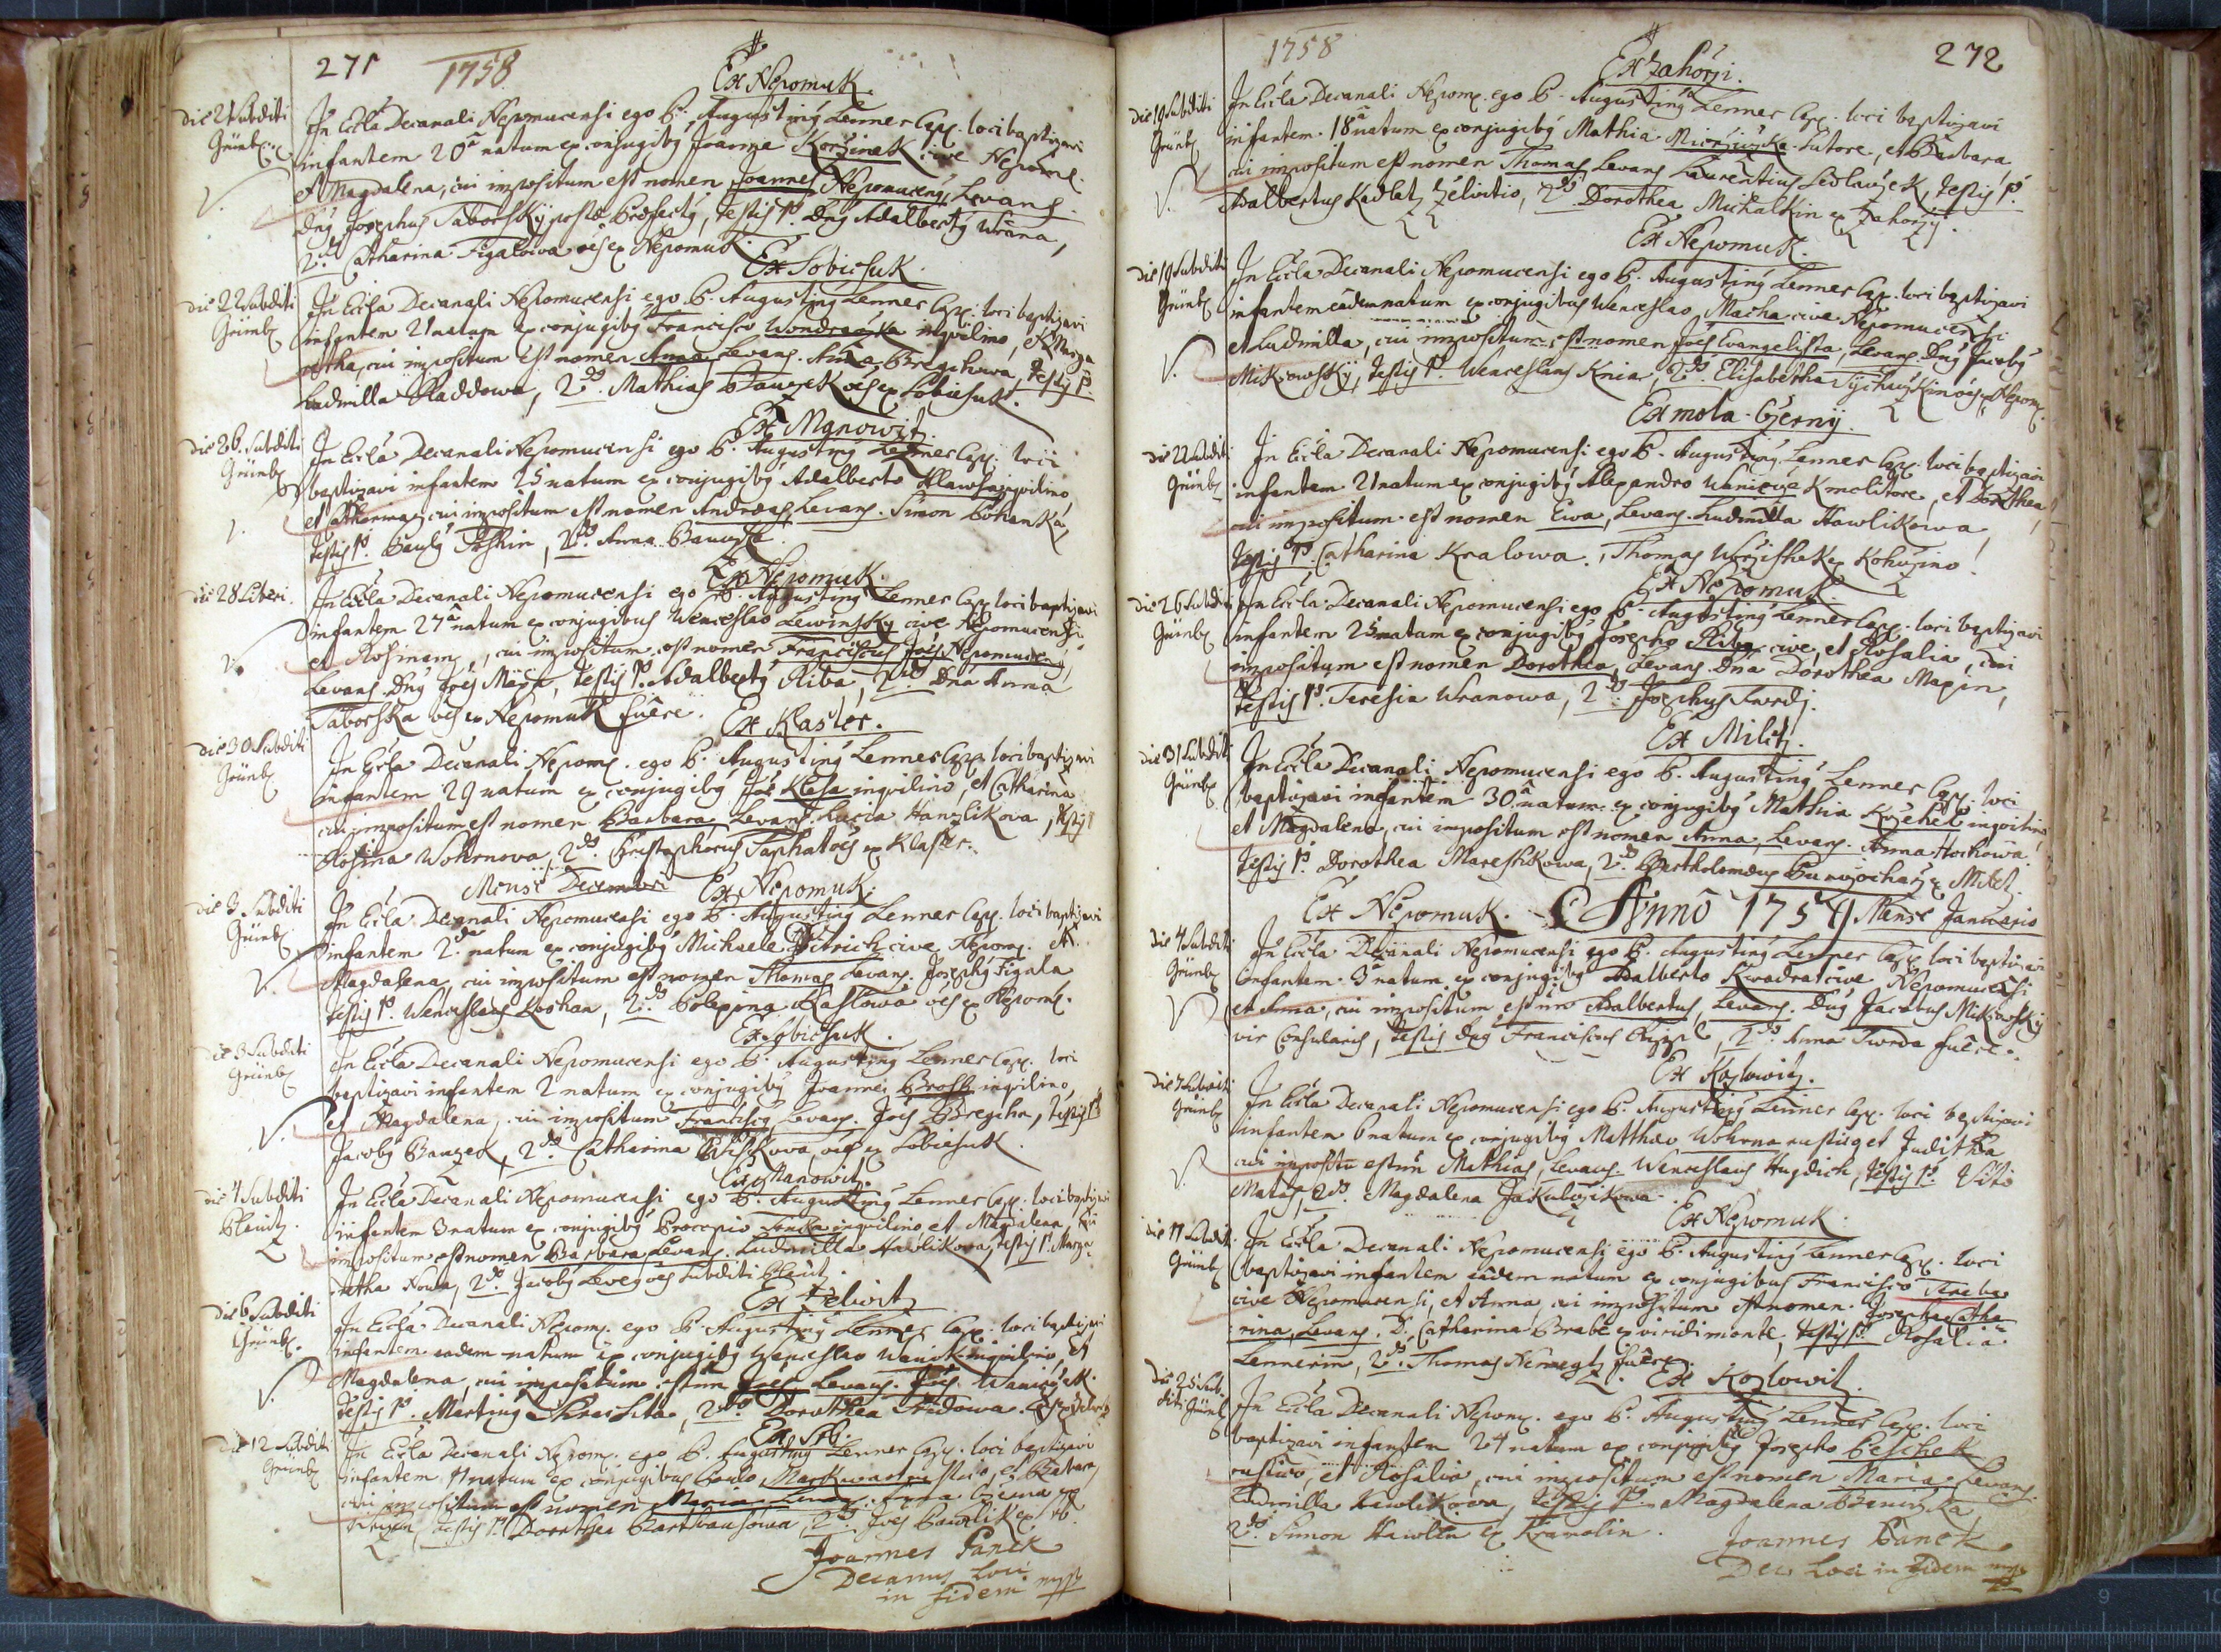 271 1758
Ex Nepomuk.
die 21 Subditi
Grünb.
In Eccla Decanali Nepomucensi ego P. Augustiný Lenner Capp. loci baptizavi
infantem 20â natum ex conjugibý Joanne Koržinek cive Nepom.
et Magdalena, cui impositum est nomen Joannes Nepomucený, Levans
Dný Josephus Taborský postæ Præfectý, testis 1º. Dný Adalbertý Wrana,
2dº Catharina Figalowa oes ex Nepomuk.
Ex Sobiesuk.
die 22 Subditi
Grünb
In Eccla Decanali Nepomucensi ego P. Augustiný Lenner Capp. loci baptizavi
infantem 21 natam ex conjugibý Francisco Wondražka inqvilino, et Marga
retha, cui impositum est nomen Anna, Levans. Anna Bregchowa, testis 1º.
Ludmilla Haddowa, 2dº. Mathias Bauzek oes ex Sobiesuk.
Ex Manowitz.
die 26. Subditi
Grünb
In Eccla Decanali Nepomucensi ego P. Augustiný Lenner Capp. loci
baptizavi infantem 25 natum ex conjugibý Adalberto Hlawsa inqvilino
et Catharina, cui impositum est nomen Andreas, Levans. Simon Cohanka,
testis 1º. Paulý Feshin, 2dº. Anna
Ex Nepomuk.
die 28 Liberi
In Eccla Decanali Nepomucensi ego P. Augustiný Lenner Capp. loci baptizavi
infantem 27â natum ex conjugibus Wenceslao Lewinský cive Nepomucensi
et Rosina, cui impositum est nomen Franciscus Joes Nepomucený,
Levans. Dný Joes Maxa, testis 1º. Adalbertý Riba, 2dº Dna Anna
Taborska oes ex Nepomuk fuêre.
Ex Klaster.
die 30 Subditi
Grünb
In Eccla Decanali Nepom. ego P. Augustiný Lenner Capp. loci baptizavi
infantem 29 natum ex conjugibý Joe Klasa inqvilino, et Catharina
cui impositum est nomen Barbara, Levans. Lucia Hanzlikova, testis 1
Rosina Wohrnova, 2dº. Christophorus Taphat oes ex Klaster.
Mense Decembri Ex Nepomuk.
die 3 Subditi
Grünb
In Eccla Decanali Nepomucensi ego P. Augustiný Lenner Capp. loci baptizavi
infantem 2da natum ex conjugibý Michaele Ditrich cive Nepom. et
Magdalena, cui impositum est nomen Thomas Levans. Josephý Figala
testis 1º. Wenceslaus Kochan, 2dº. Polexina Kastowa oes ex Nepom.
Ex Sobiesuk.
die 3 Subditi
Grünb
In Eccla Decanali Nepomucensi ego P. Augustiný Lenner Capp. loci
baptizavi infantem 2 natum ex conjugibý Joanne Brosh inqvilino
et Magdalena, cui impositum Franciscý Levans. Joes Bregcha, testis 1º
Jacobý Bauzek, 2dº. Catharina oes ex Sobiesuk.
Ex Manowitz.
die 4 Subditi
Plauitz.
In Eccla Decanali Nepomucensi ego P. Augustiný Lenner Capp. loci baptizavi
infantem 3 natum ex conjugibý Procopio inqvilino et Magdalena, cui
impositum est nomen Barbara, Levans. Ludmilla Hawlikova, testis 1º. Marga
retha Nowa, 2dº. Jacobý oes Subditi Plauitz.
Ex Zelwitz
die 6 Subditi
Grünb.
In Eccla Decanali Nepom. ego P. Augustiný Lenner Capp. loci baptizavi
infantem eadem natum ex conjugibý Wenceslao Waniek inqvilino, et
Magdalena, cui impositum est nm Joes Levans. Joes Wanizek.
testis 1º. Martiný, 2dº. Dorothea
Ex Srb.
die 12 Subditi
Grünb
In Eccla Decanali Nepom. ego P. Augustiný Lenner Capp. loci baptizavi
infantem 11 natum ex conjugibus Paulo Markwart rustico, et Barbara
cui impositum est nomen Maria Levans. Anna
testis 1º. Dorothea, 2dº Joes Pawlik ex srb.
Joannes Panek
Decanus Loci
in fidem mpp
1758 272
Ex Zahorzi.
die 19 Subditi
Grünb
In Eccla Decanali Nepom. ego P. Augustiný Lenner Capp. loci baptizavi
infantem 18â natum ex conjugibý Mathia Sutore, et Barbara
cui impositum est nomen Thomas Levans Laurentius Sedlaczek, testis 1º.
Adalbertus Kadletz Zelvitio, 2dº. Dorothea Michalkin ex Zahorzy.
Ex Nepomuk.
die 19 Subditi
Grünb
In Eccla Decanali Nepomucensi ego P. Augustiný Lenner Capp. loci baptizavi
infantem eâdem natum ex conjugibus Wenceslao Macha cive Nepomucensi
et Ludmilla, cui impositum est nomen Joes Evangelista, Levans. Dný Jacobý
Mikowský, testis 1º. Wenceslaus Kniar, 2dº. Elisabetha oes ex Nepom.
Ex mola Czerný.
die 22 Subditi
Grünb
In Eccla Decanali Nepomucensi ego P. Augustiný Lenner Capp. loci baptizavi
infantem 21 natum ex conjugibý Alexandro molitore, et Dorothea,
cui impositum est nomen Ewa, Levans. Ludmilla Hawlikowa,
testis 1º. Catharina Kralowa, Thomas ex Kohuzino.
Ex Nepomuk.
die 26 Subditi
Grünb
In Eccla Decanali Nepomucensi ego P. Augustiný Lenner Capp. loci baptizavi
infantem 25 natam ex conjugibý Josepho Riba cive, et Rosalia, cui
impositum est nomen Dorothea, Levans. Dna Dorothea Maxin,
testis 1º. Teresia Wranowa, 2dº. Josephus
Ex Militz.
die 31 Subditi
Grünb
In Eccla Decanali Nepomucensi ego P. Augustiný Lenner Capp. loci
baptizavi infantem 30â natam ex conjugibý Mathia inqvilino
et Magdalena, cui impositum est nomen Anna, Levans. Anna Horhowa
testis 1º. Dorothea Mareshkowa, 2dº Bartholomæus ex Milit.
Ex Nepomuk. Annô 1759 Mense Januario
die 4 Subditi
Grünb
In Eccla Decanali Nepomucensi ego P. Augustiný Lenner Capp. loci baptizavi
infantem 3 natum ex conjugibý Adalberto Kwadrat cive Nepomucensi
et Anna, cui impositum est nm Adalbertus, Levans. Dný Jacobus Mikowský
vir Consularis, testis Dný Franciscus, 2dº. Anna Twrda fuêre.
Ex Kozlowitz.
die 7 Subditi
Grünb
In Eccla Decanali Nepomucensi ego P. Augustiný Lenner Capp. loci baptizavi
infantem 6 natum ex conjugibý Matthæo Wohrna rustico et Juditha
cui impositu est nm Mathias, Levans. Wenceslaus Hugdich, testis 1º. Vitô
2dº. Magdalena
Ex Nepomuk.
die 11 Subditi
Grünb
In Eccla Decanali Nepomucensi ego P. Augustiný Lenner Capp. loci
baptizavi infantem eâdem natum ex conjugibus Francisco
cive Nepomucensi, et Anna, cui impositum est nomen Josepha Catha
rina, Levans. D. Catharina Brabe ex viridi monte, testis 1º. Rosalia
Lennerin, 2dº. Thomas fuêre.
Ex Kozlowitz.
die 25 Sub
diti Grünb
In Eccla Decanali Nepom. ego P. Augustiný Lenner Capp. loci
baptizavi infantem 24 natam ex conjugibý Josepho Beschek
rustico, et Rosalia, cui impositum est nomen Maria, Levans.
Ludmilla Hawlikowa, testis 1º. Magdalena
2dº. Simon Hawlin ex Kramolin.
Joannes Panek
Dec Loci in fidem mpp